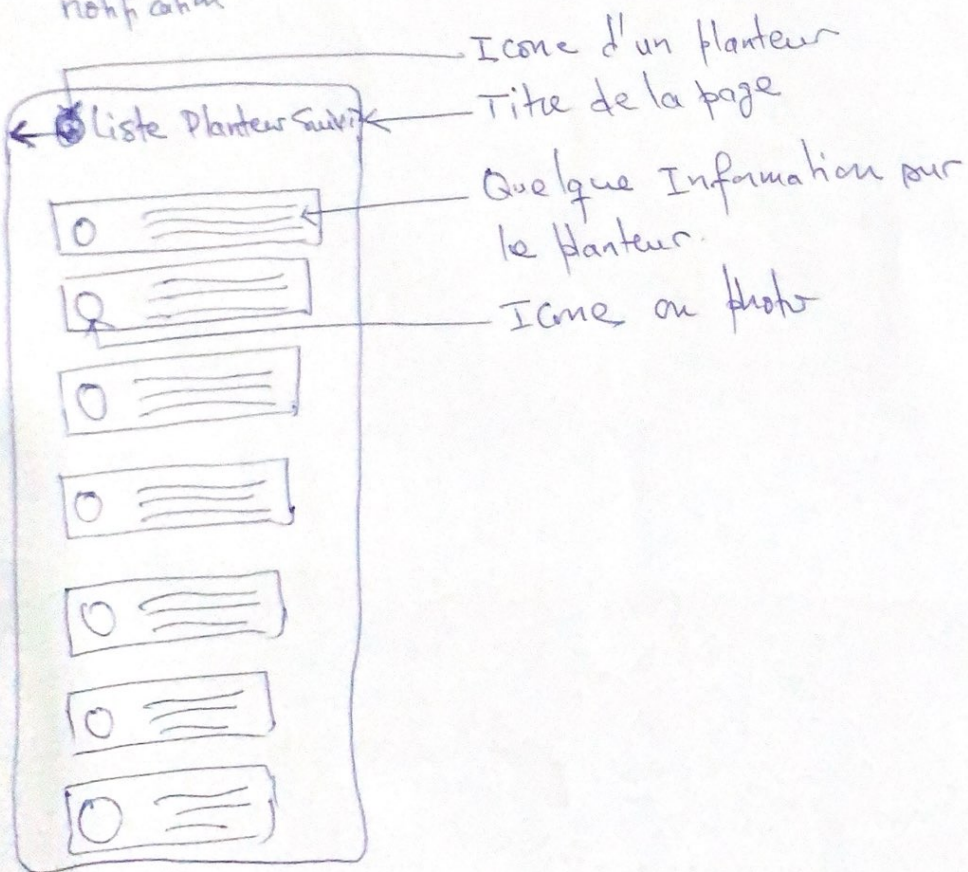 Icone d'un planteur
Liste Planteur Suivi
Titre de la page
Quelque Information sur
le planteur.
Icone ou photo